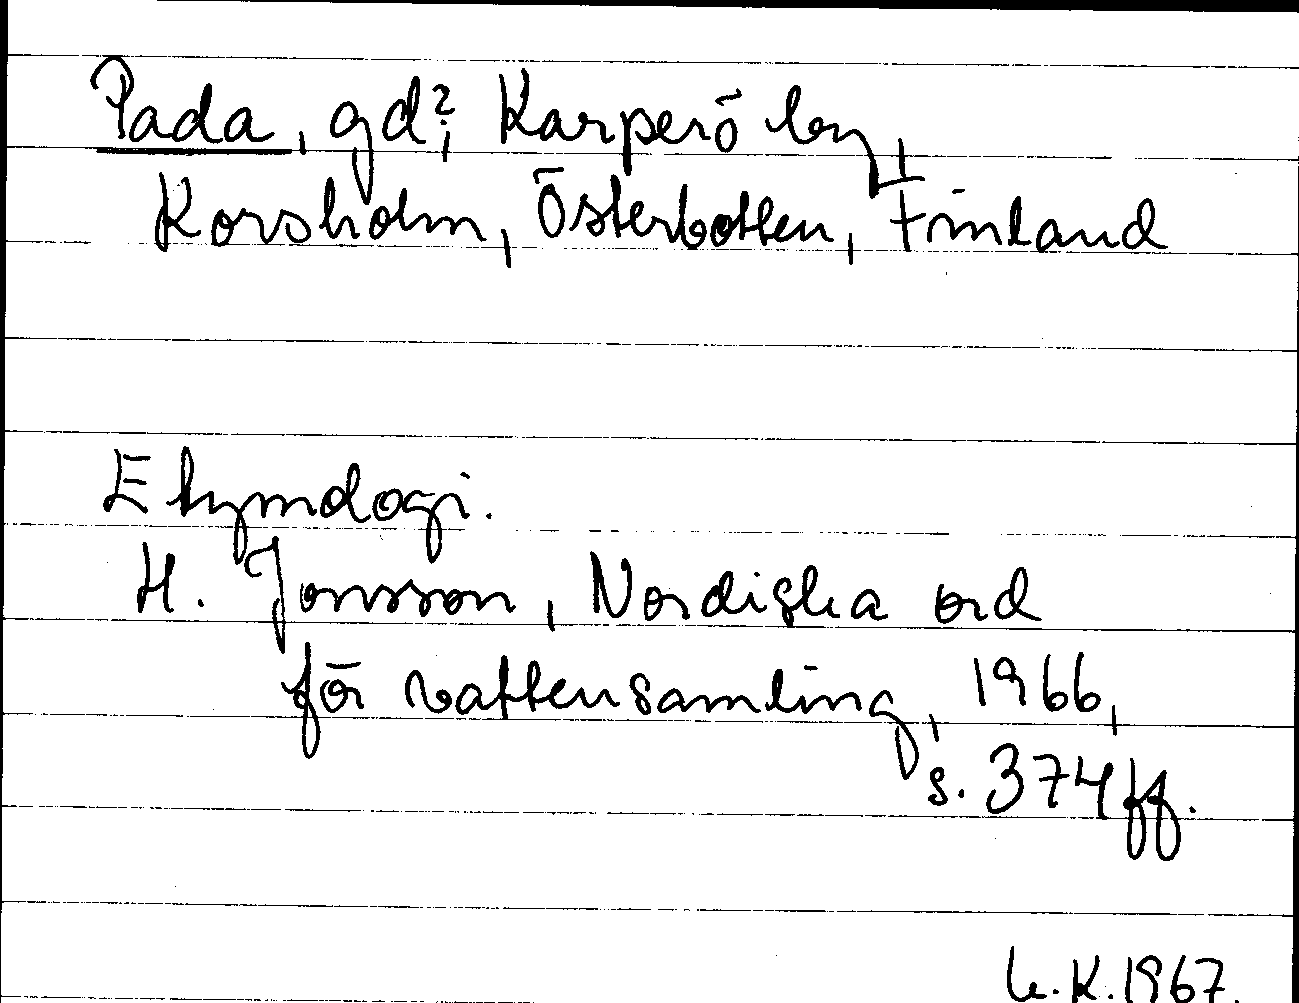 Pada, gd?, Karperö by,
Korsholm, Österbotten, Finland
Etymologi.
H. Jonsson, Nordiska ord
för vattensamling, 1966,
s. 374 ff.
K. 1967.